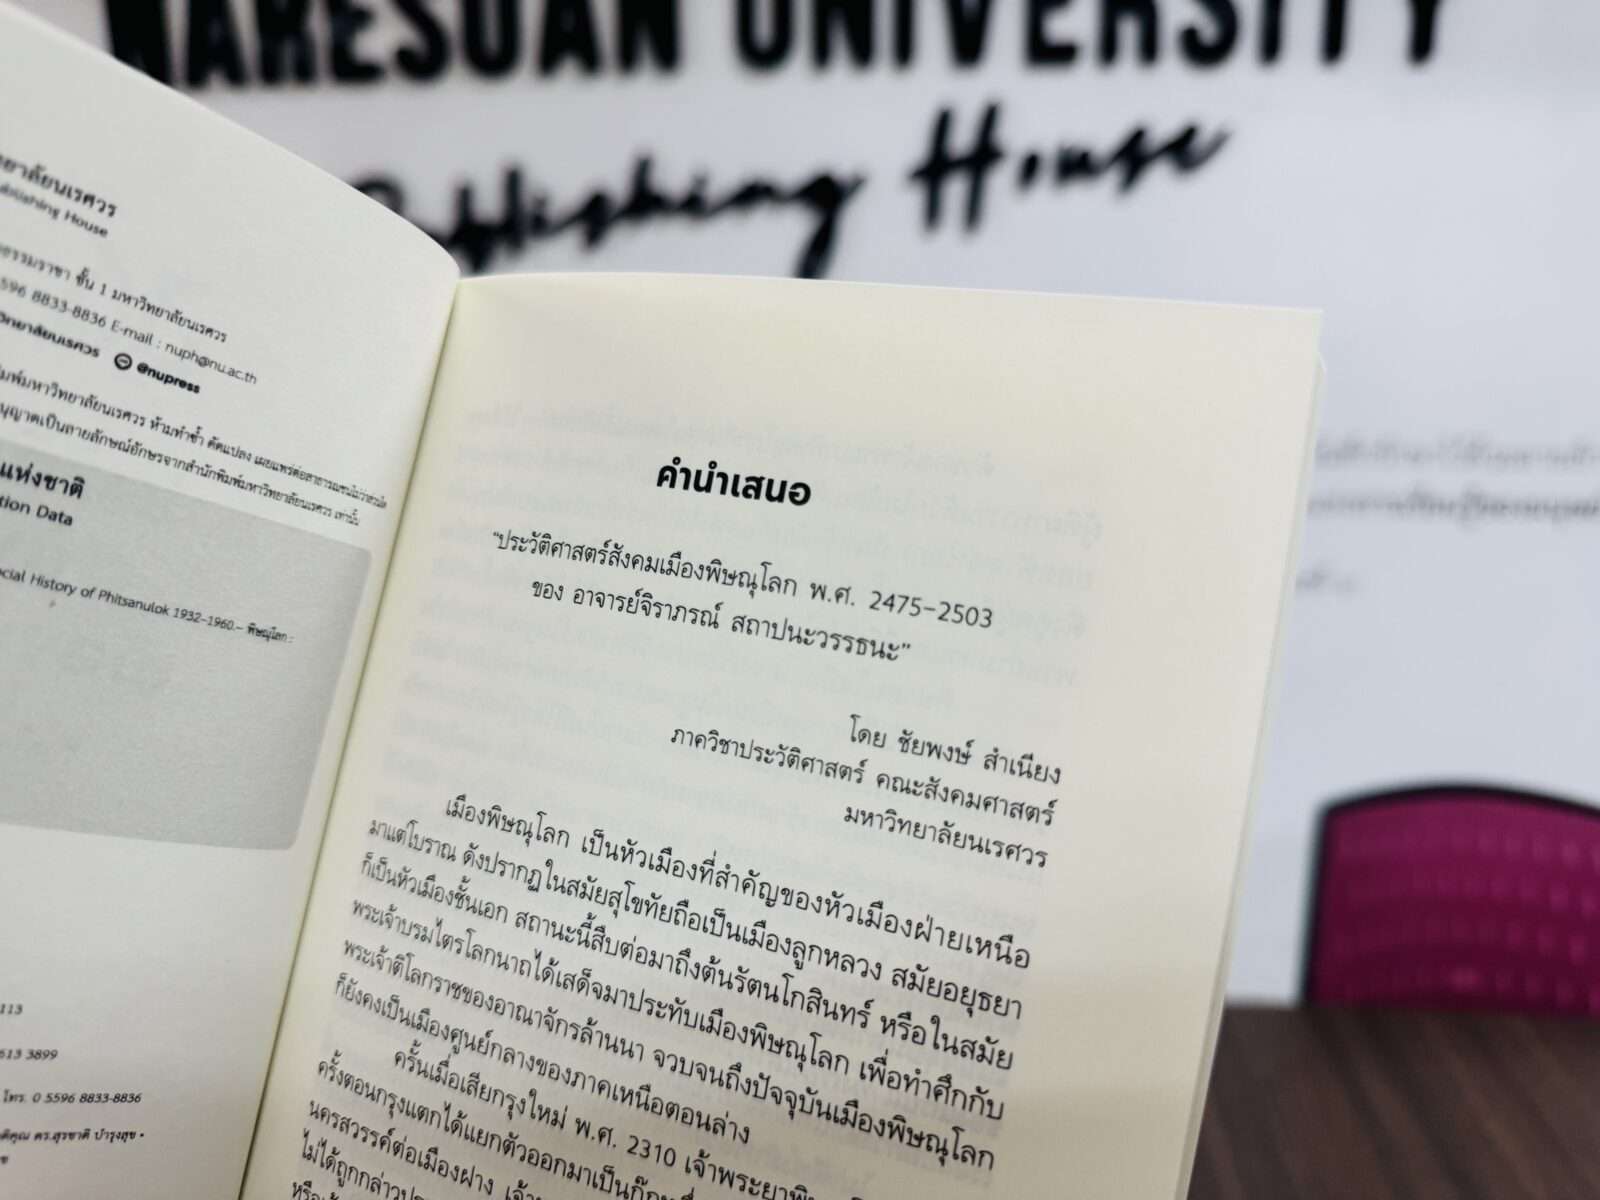 NARESUAN UNIVERSITY
Publishing House
ยาลัยนเรศวร
blishing House
ธรรมราชา ชั้น 1 มหาวิทยาลัยนเรศวร
596 8833-8836 E-mail : nuph@nu.ac.th
วิทยาลัยนเรศวร @nupress
มพ์มหาวิทยาลัยนเรศวร ห้ามทำซ้ำ ดัดแปลง เผยแพร่ต่อสาธารณชนไม่ว่าส่วนใด
นุญาตเป็นลายลักษณ์อักษรจากสำนักพิมพ์มหาวิทยาลัยนเรศวร เท่านั้น
แห่งชาติ
tion Data
cial History of Phitsanulok 1932-1960.-- พิษณุโลก :
113
613 3899
โทร. 0 5596 8833-8836
ติคุณ ดร.สุรชาติ บำรุงสุข •
คำนำเสนอ
"ประวัติศาสตร์สังคมเมืองพิษณุโลก พ.ศ. 2475-2503
ของ อาจารย์จิราภรณ์ สถาปนะวรรธนะ"
โดย ชัยพงษ์ สำเนียง
ภาควิชาประวัติศาสตร์ คณะสังคมศาสตร์
มหาวิทยาลัยนเรศวร
เมืองพิษณุโลก เป็นหัวเมืองที่สำคัญของหัวเมืองฝ่ายเหนือ
มาแต่โบราณ ดังปรากฏในสมัยสุโขทัยถือเป็นเมืองลูกหลวง สมัยอยุธยา
ก็เป็นหัวเมืองชั้นเอก สถานะนี้สืบต่อมาถึงต้นรัตนโกสินทร์ หรือในสมัย
พระเจ้าบรมไตรโลกนาถได้เสด็จมาประทับเมืองพิษณุโลก เพื่อทำศึกกับ
พระเจ้าติโลกราชของอาณาจักรล้านนา จวบจนถึงปัจจุบันเมืองพิษณุโลก
ก็ยังคงเป็นเมืองศูนย์กลางของภาคเหนือตอนล่าง
ครั้นเมื่อเสียกรุงใหม่ พ.ศ. 2310 เจ้าพระยาพิษ
ครั้งตอนกรุงแตกได้แยกตัวออกมาเป็นก๊ก
นครสวรรค์ต่อเมืองฝาง เจ้า
ไม่ได้ถูกกล่าว